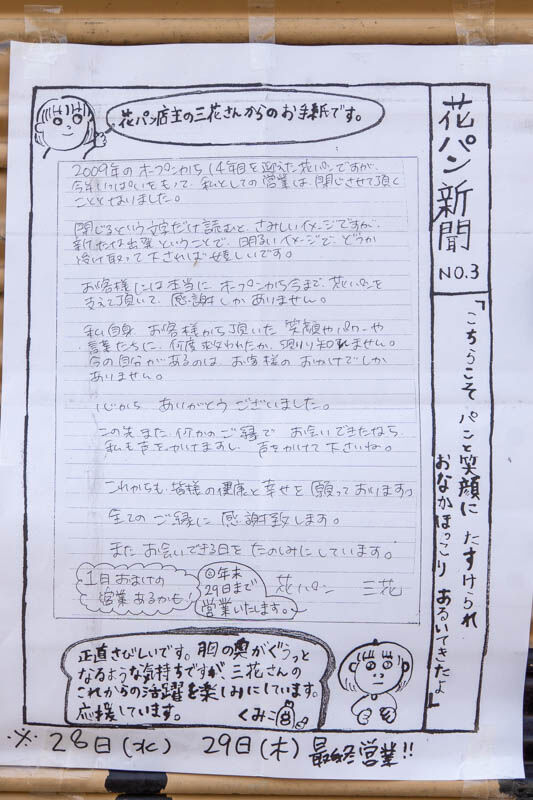 花パン新聞
NO.3
「こちらこそ パンと笑顔に たすけられ
おなかほっこり あるいてきたよ」
花パン店主の三花さんからのお手紙です。
2009年のオープンから14年目を迎えた花パンですが、
今年いっぱいをもって、私としての営業は閉じさせて頂く
こととなりました。
閉じるという文字だけ読むと、さみしいイメージですが、
新たな出発ということで、明るいイメージで、どうか
受け取って下されば嬉しいです。
お客様には本当に、オープンから今まで、花パンを
支えて頂いて、感謝しかありません。
私自身、お客様から頂いた笑顔やパワーや
言葉たちに、何度救われたか、計り知れません。
今の自分があるのは、お客様のおかげでしか
ありません。
心から ありがとうございました。
この先また、何かのご縁で お会いできたなら、
私も声をかけますし、声をかけて下さいね。
これからも、皆様の健康と幸せを願っております。
全てのご縁に感謝致します。
また お会いできる日を たのしみにしています。
花パン 三花
1日おまけの
営業あるかも!
◎年末
29日まで
営業いたします。
正直さびしいです。胸の奥がぐぅっと
なるような気持ちですが 三花さんの
これからの活躍を楽しみにしています。
応援しています。 くみこ
※28日(水) 29日(木) 最終営業!!